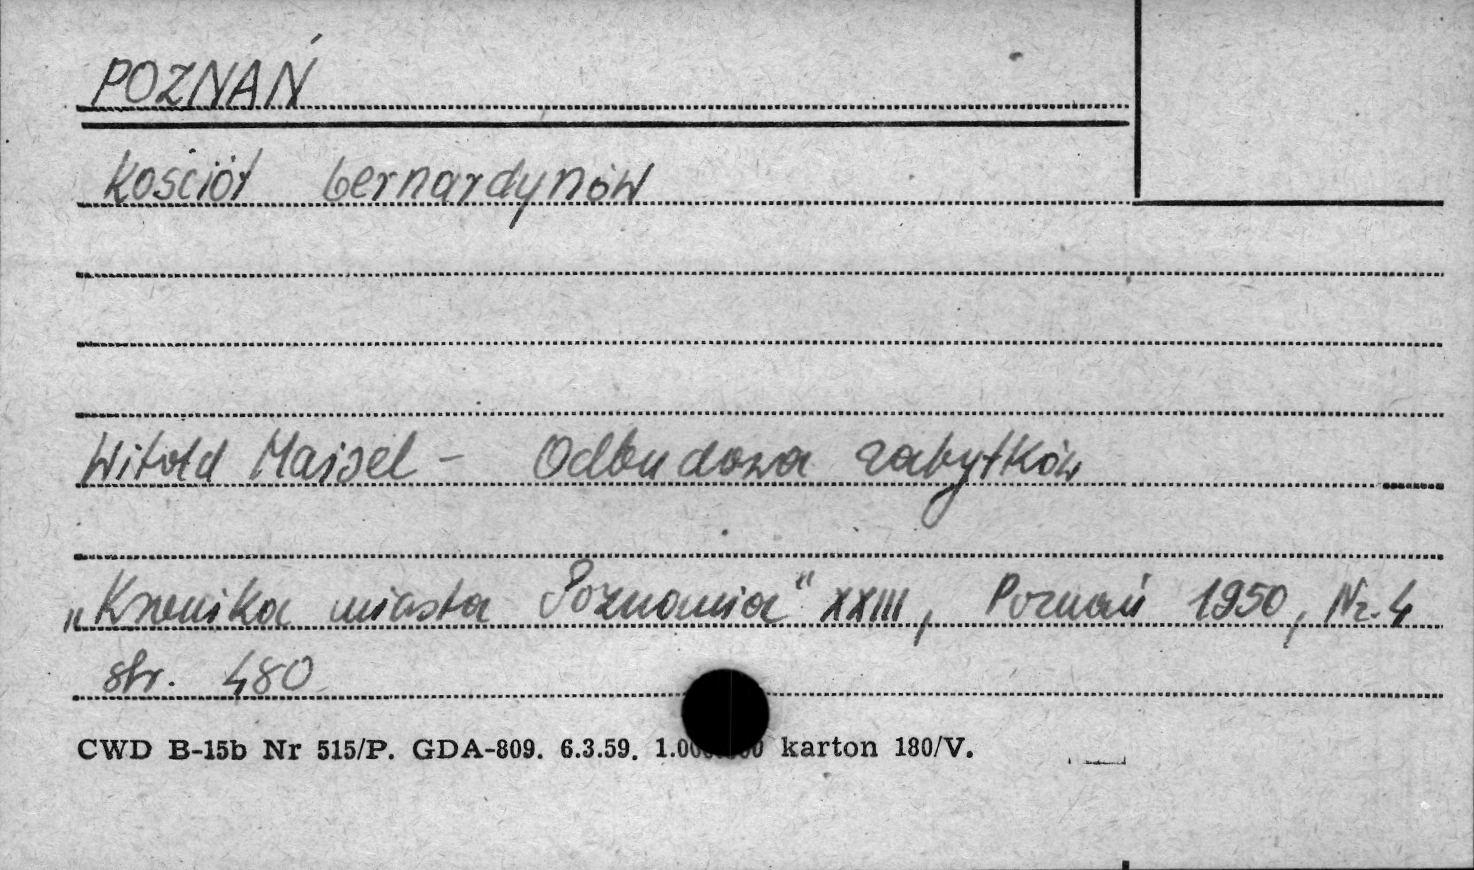 POZNAŃ
Kościół bernardynów
Witold Maisel - Odbudowa zabytków
„Kronika miasta Poznania" XXIII, Poznań 1950, Nr. 4
str. 480
CWD B-15b Nr 515/P. GDA-809. 6.3.59. karton 180/V.